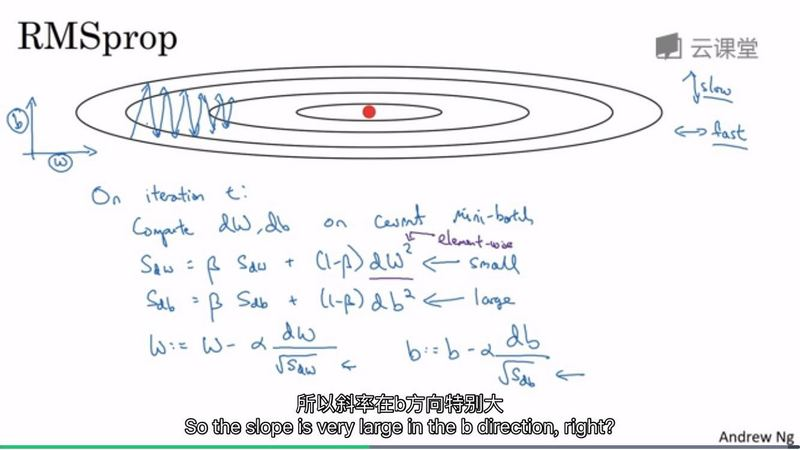 RMSprop
云课堂
slow
fast
b
w
On iteration t:
Compute dW, db on current mini-batch
element-wise
Sdw = β Sdw + (1-β) dW² ← small
Sdb = β Sdb + (1-β) db² ← large
W := W - α dW/√Sdw ← b := b - α db/√Sdb ←
所以斜率在b方向特别大
So the slope is very large in the b direction, right?
Andrew Ng